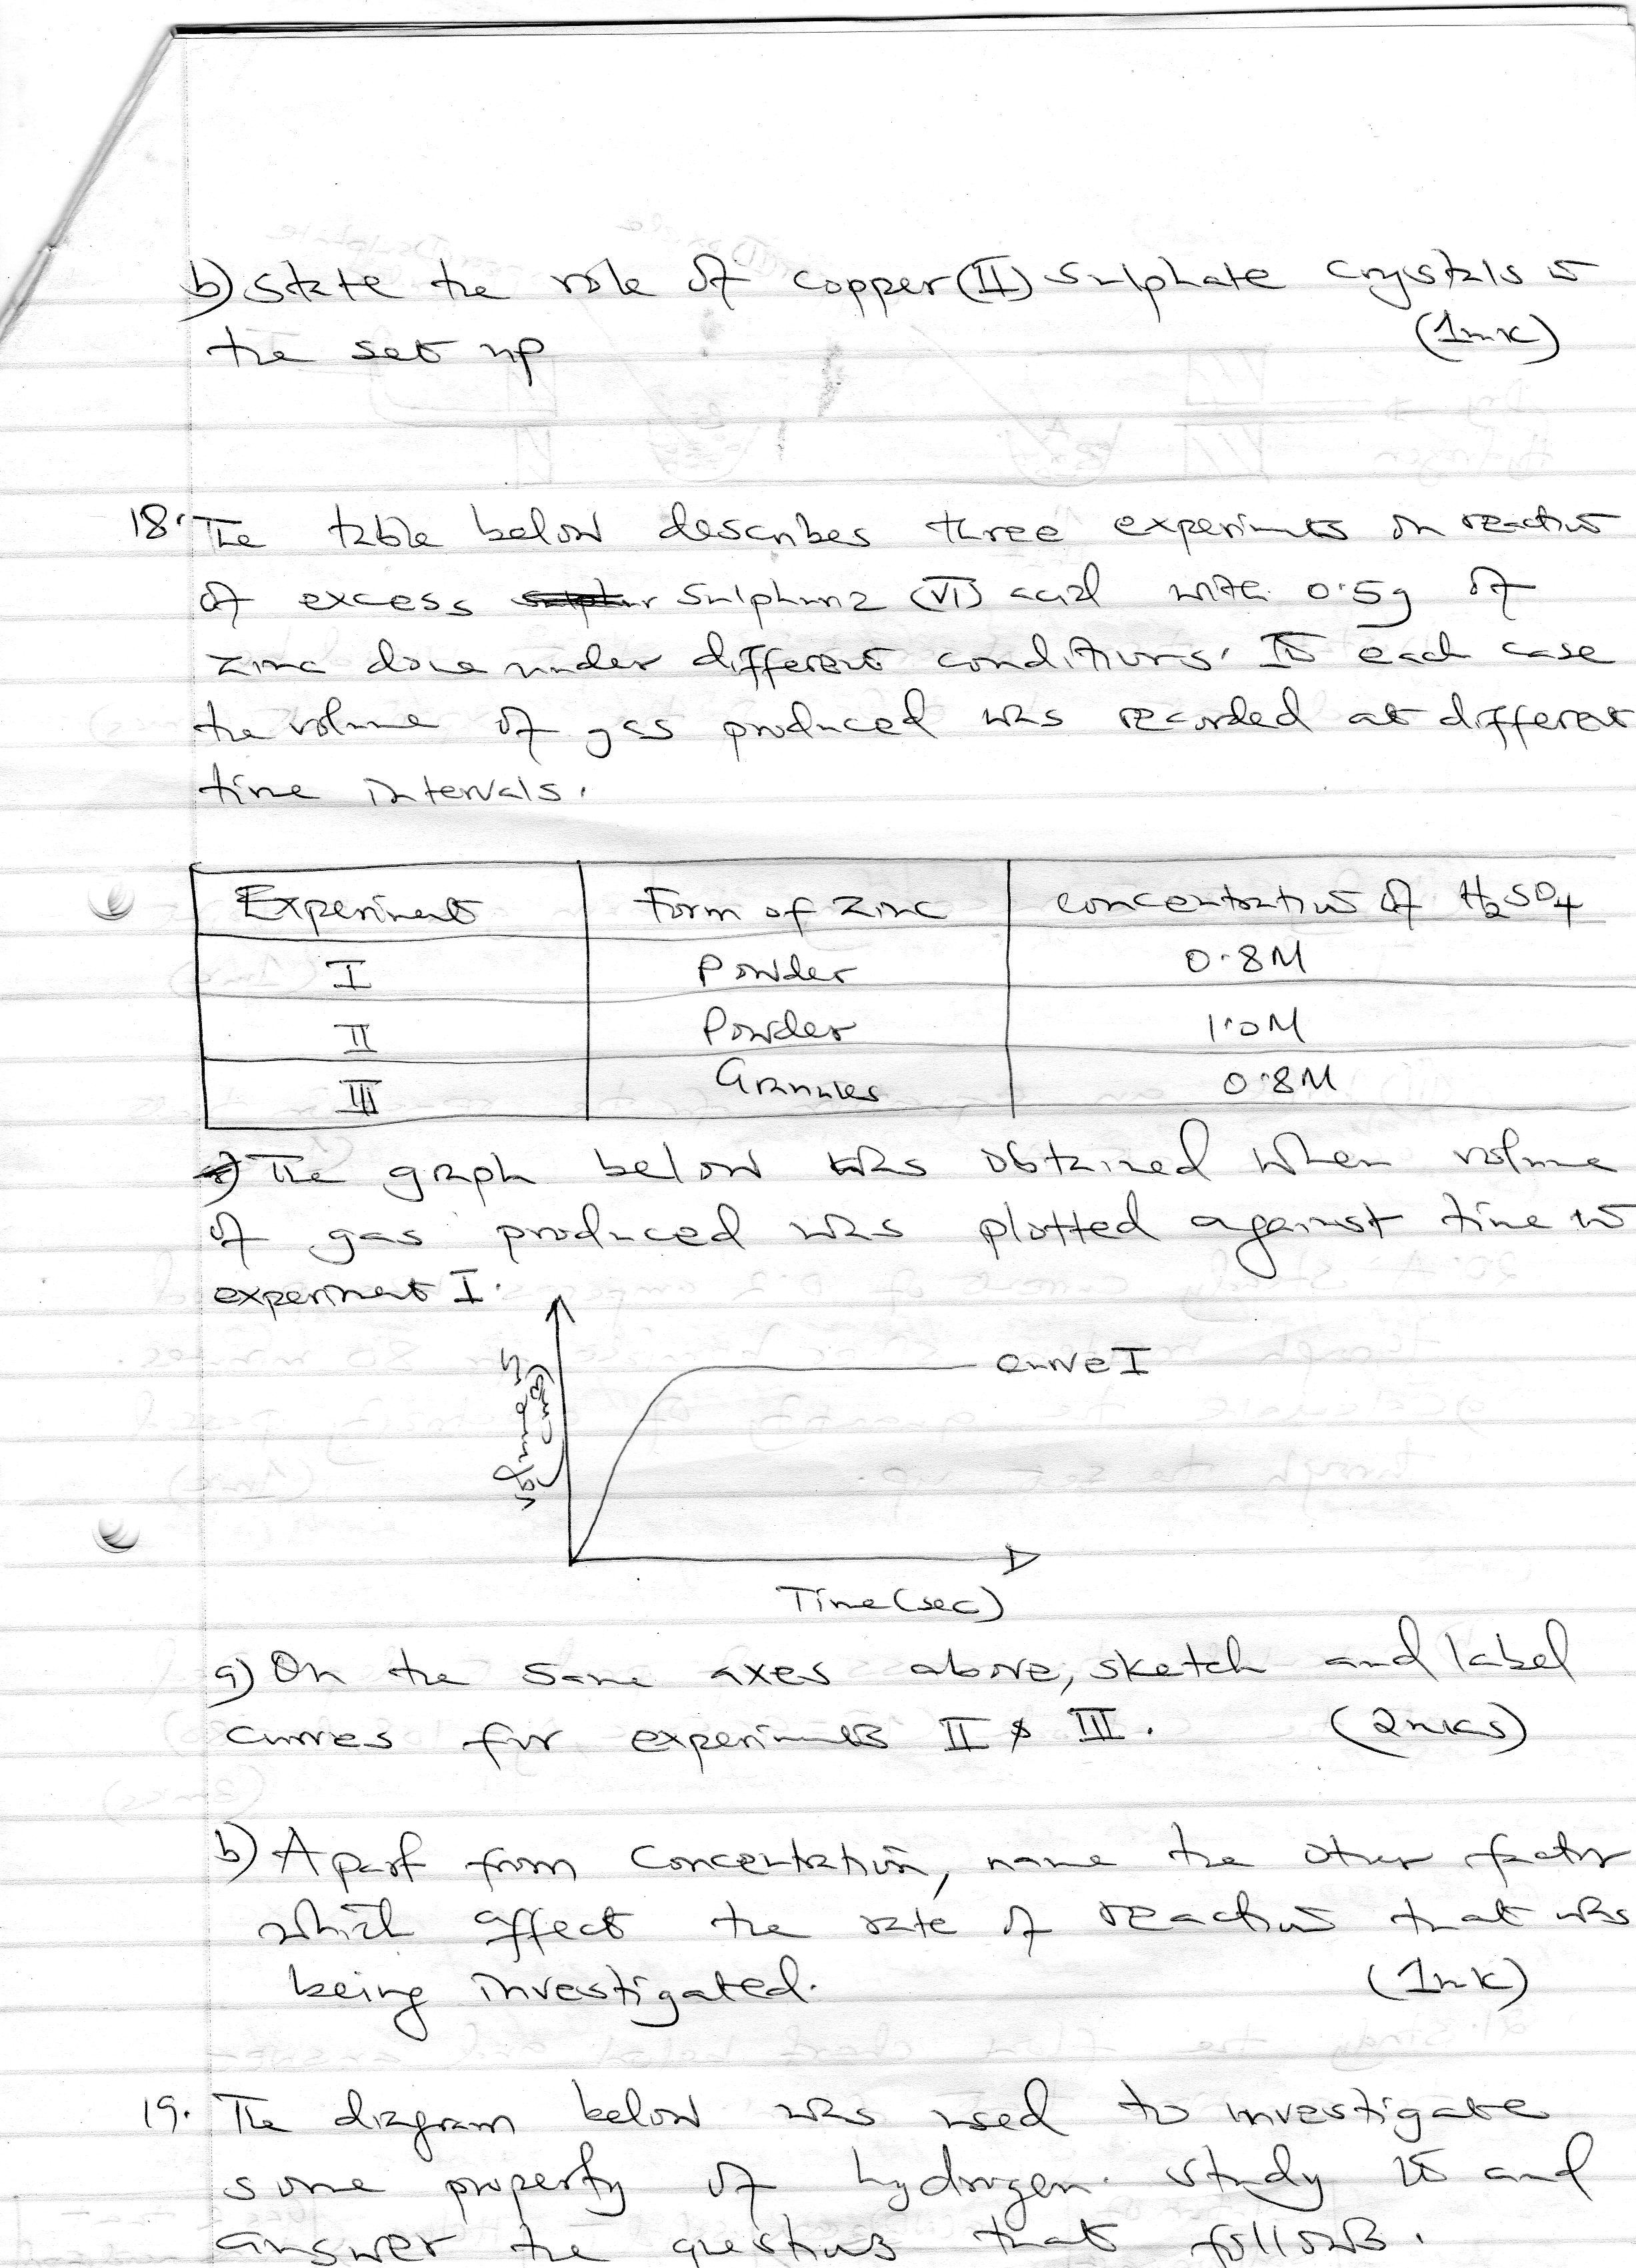 b) State the role of copper (II) sulphate crystals in
the set up (1mk)
18. The table below describes three experiments on reaction
of excess sulphuric (VI) acid with 0.5g of
zinc done under different conditions. In each case
the volume of gas produced was recorded at different
time intervals.
Experiment Form of zinc concentration of H₂SO₄
I Powder 0.8M
II Powder 1.0M
III Granules 0.8M
The graph below was obtained when volume
of gas produced was plotted against time in
experiment I.
Volume of
curve I
Time (sec)
a) On the same axes above, sketch and label
curves for experiments II & III. (2mks)
b) Apart from concentration, name the other factor
which affect the rate of reaction that was
being investigated. (1mk)
19. The diagram below was used to investigate
some property of hydrogen. Study it and
answer the questions that follows.